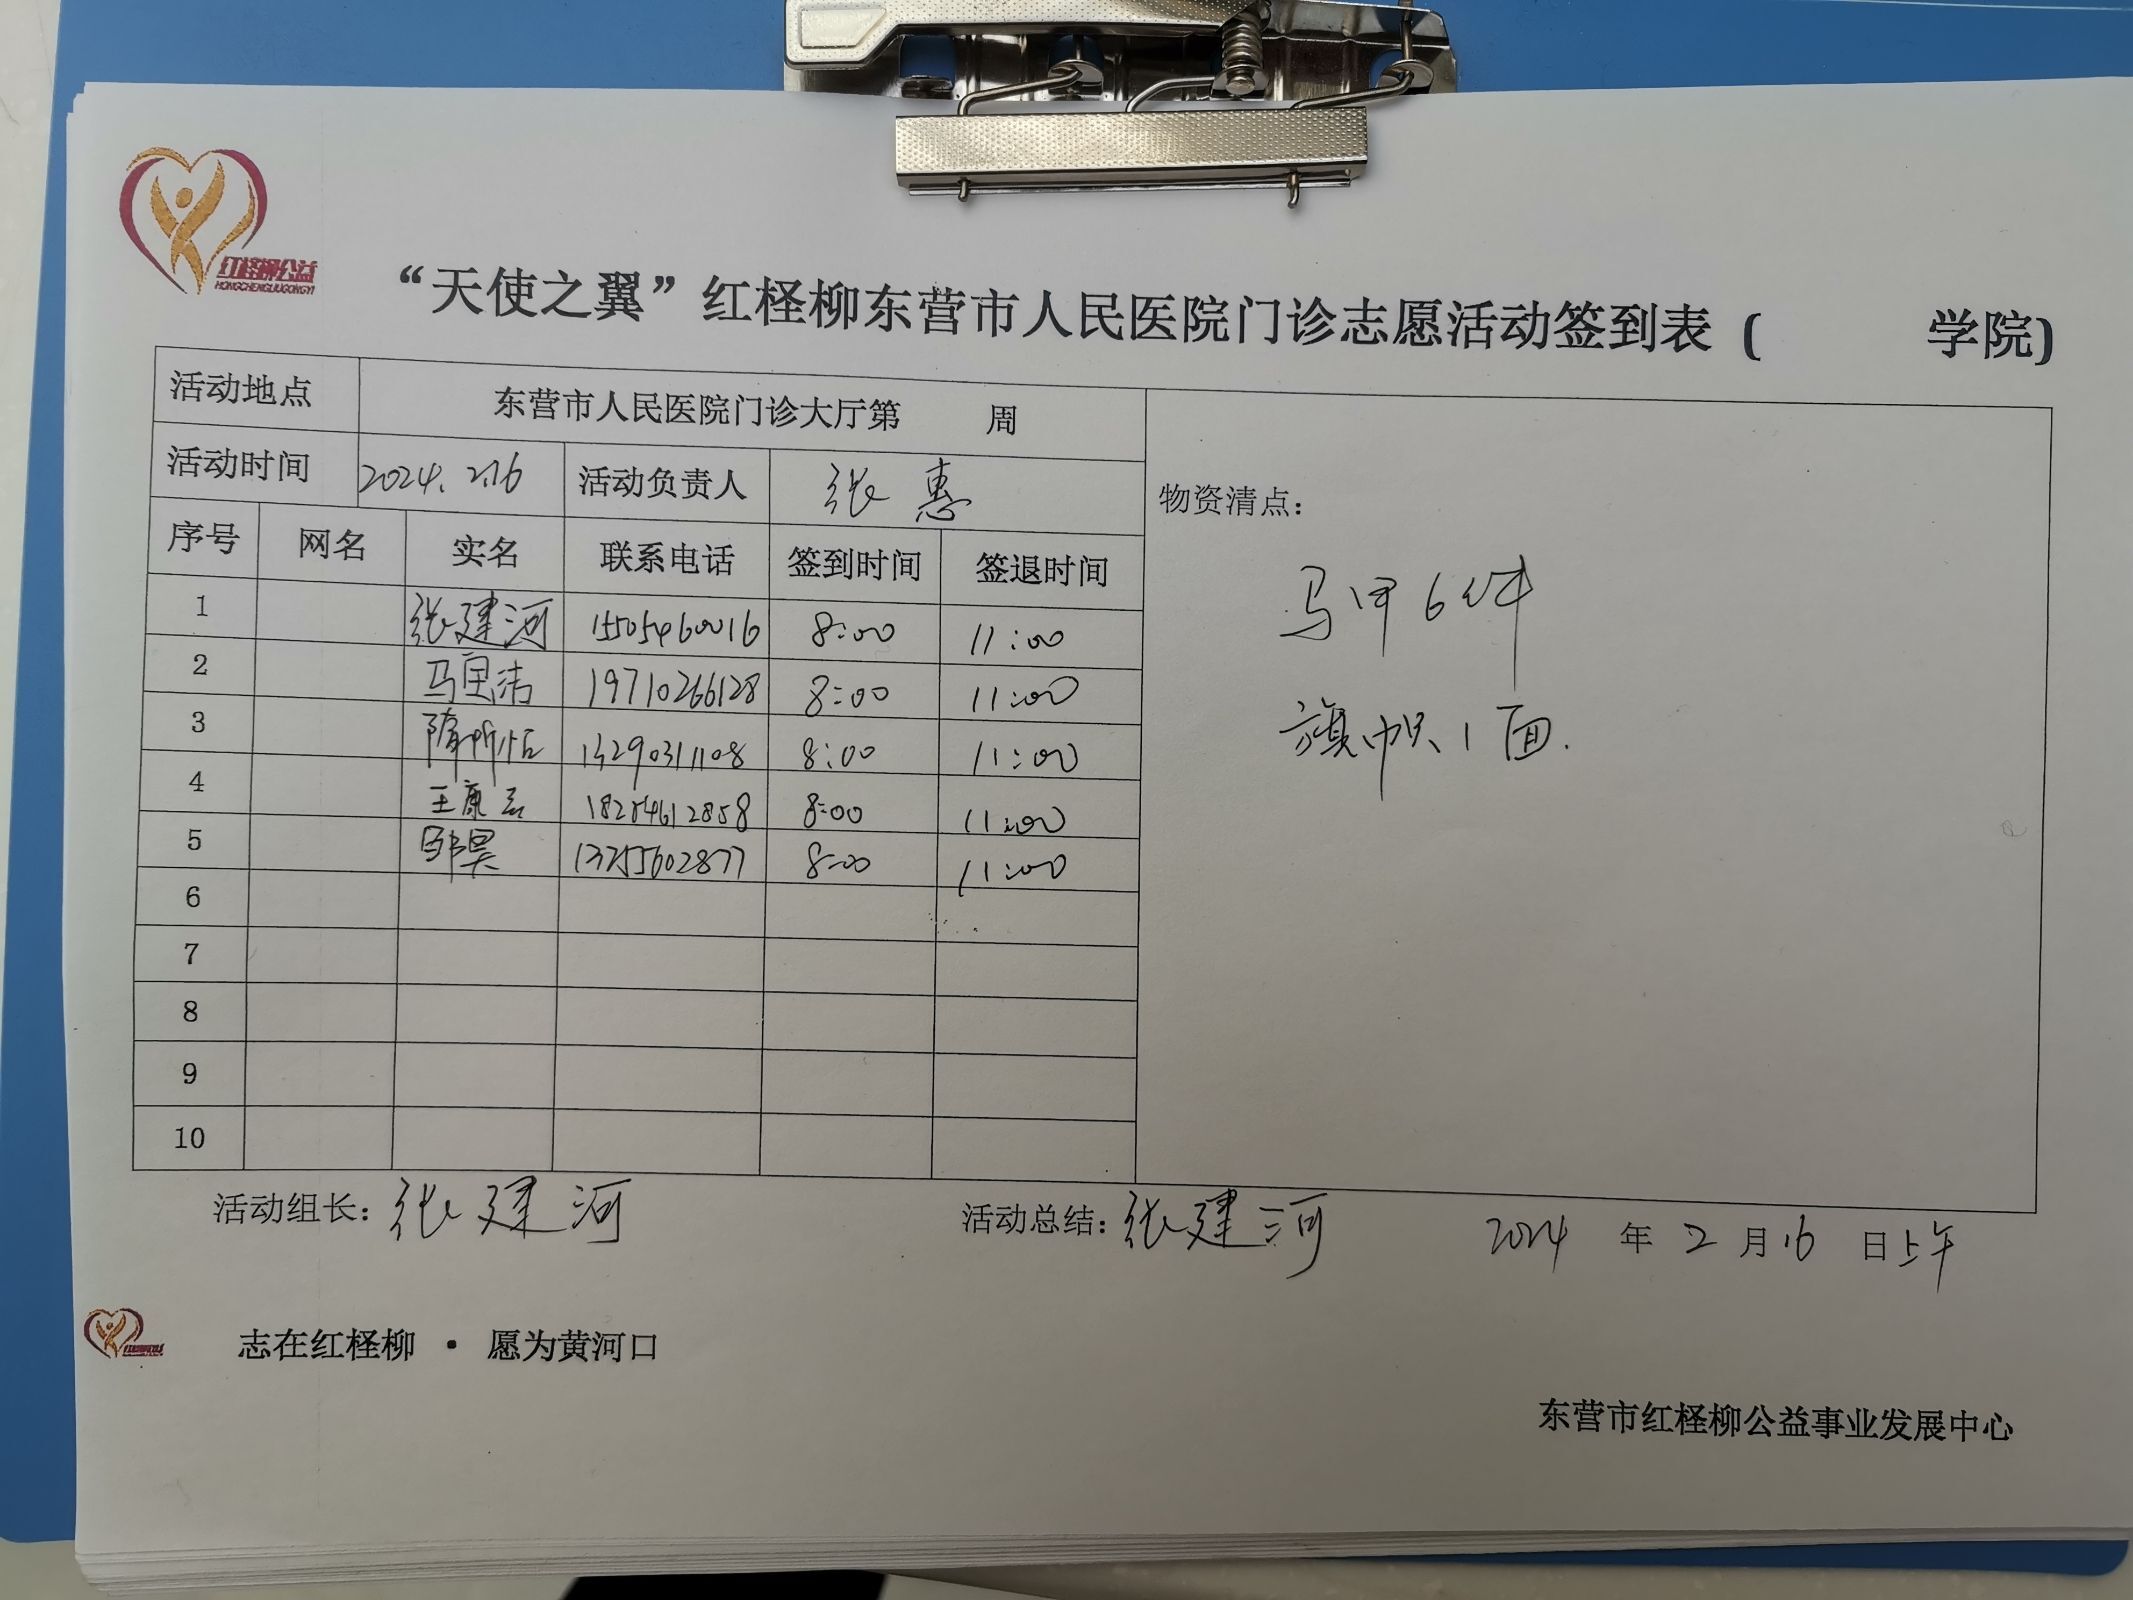 红柽柳公益
HONGCHENGLIUGONGYI
“天使之翼”红柽柳东营市人民医院门诊志愿活动签到表（ 学院)
活动地点 东营市人民医院门诊大厅第 周
活动时间 2024.2.16 活动负责人 张惠
物资清点：
序号 网名 实名 联系电话 签到时间 签退时间
1 张建河 15505460016 8:00 11:00
马甲6件
2 19710266128 8:00 11:00
旗帜1面.
3 8:00 11:00
4 王康 8:00 11:00
5 邹昊 13255602877 8:00 11:00
6
7
8
9
10
活动组长：张建河 活动总结：张建河 2024 年 2 月 16 日上午
志在红柽柳 · 愿为黄河口
东营市红柽柳公益事业发展中心